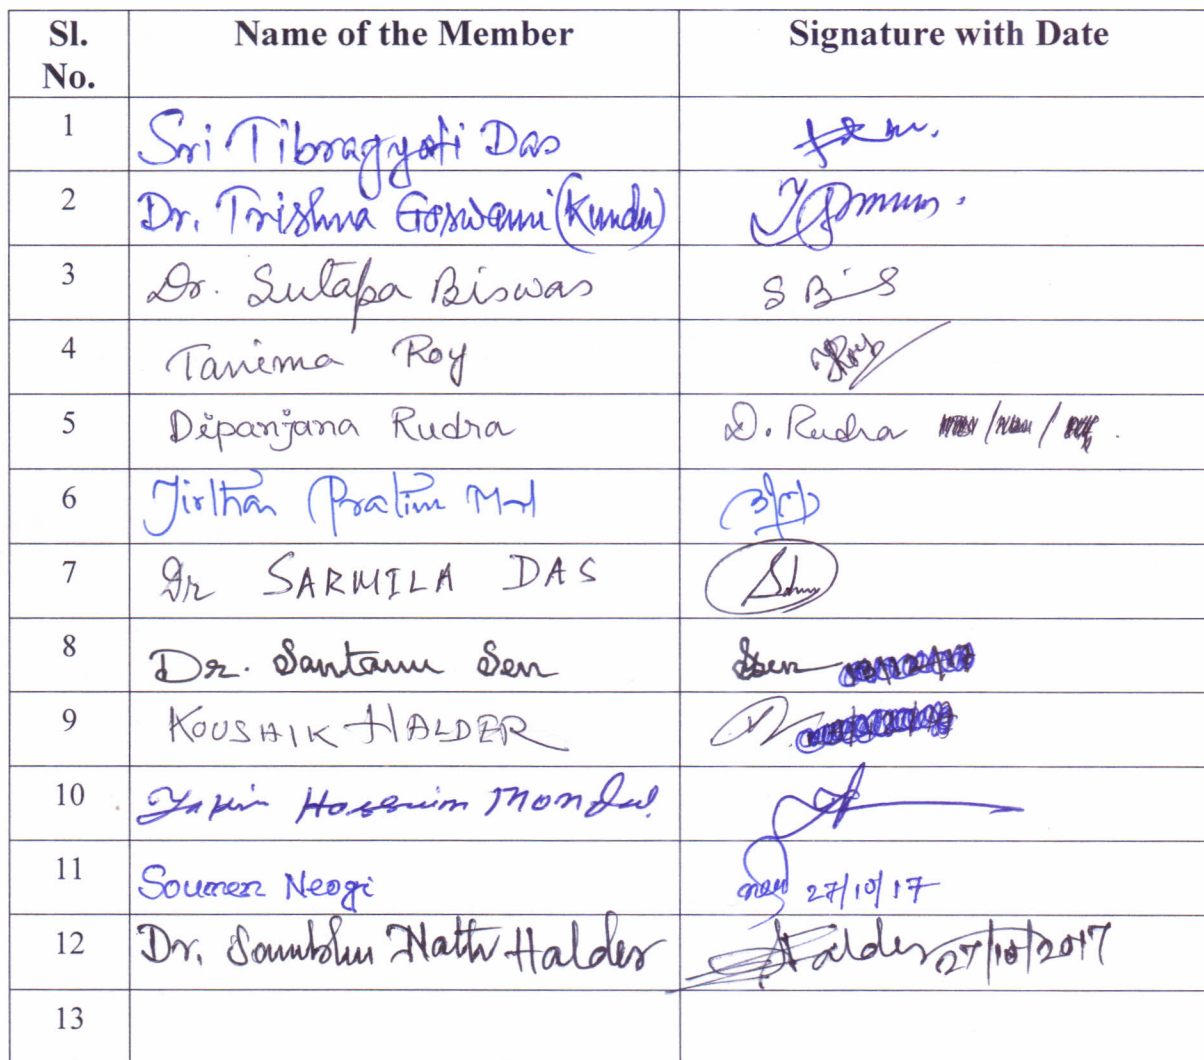 Sl. No. Name of the Member Signature with Date
1 Sri Tibragyoti Das
2 Dr. Trishna Goswami (Kundu)
3 Dr. Sutapa Biswas S Bis
4 Tanima Roy TRoy
5 Dipanjana Rudra D. Rudra
6 Tirthan Pratim
7 Dr SARMILA DAS
8 Dr. Santanu Sen SSen
9 KOUSHIK HALDER
10 Hossain Mondal.
11 Soumen Neogi 27/10/17
12 Dr. Sambhu Nath Halder Halder 27/10/2017
13